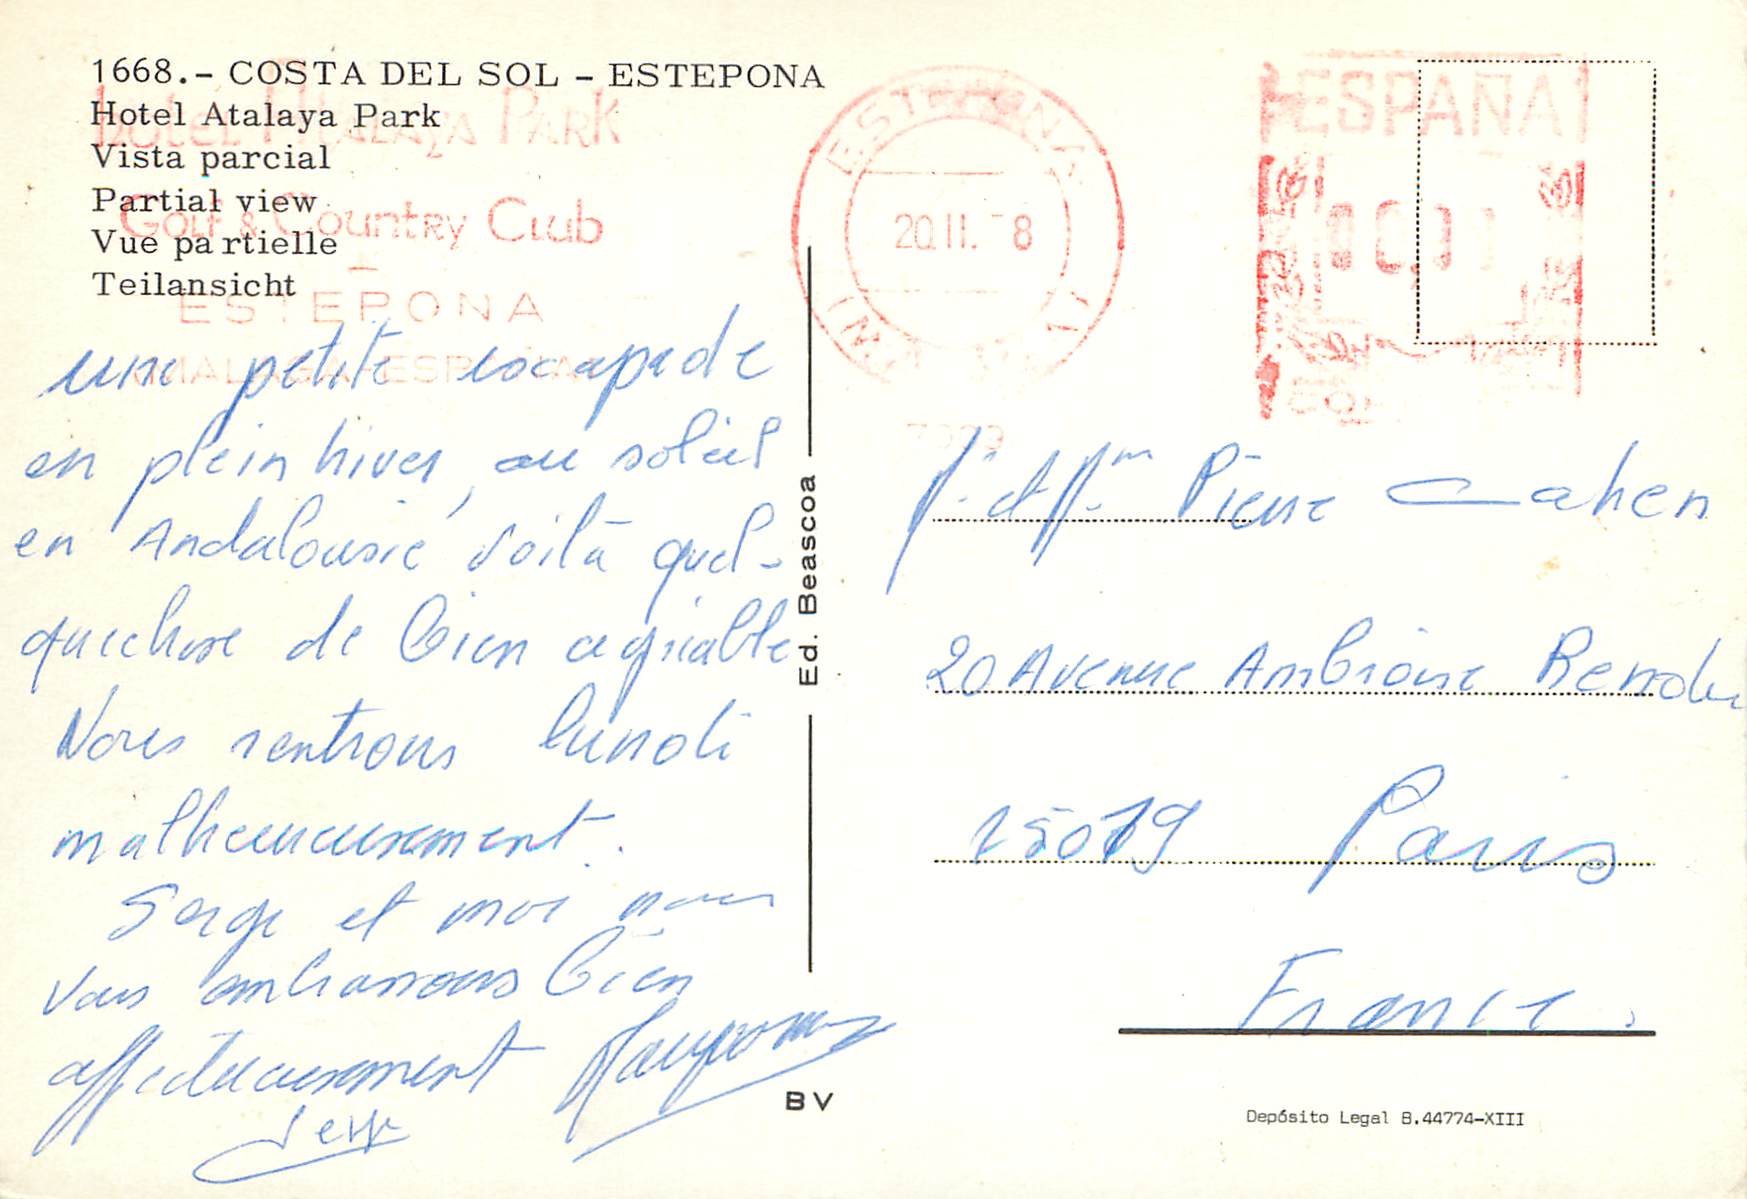 1668.- COSTA DEL SOL - ESTEPONA
Hotel Atalaya Park
Vista parcial
Partial view
Vue partielle
Teilansicht
HOTEL ATALAYA PARK
GOLF & COUNTRY CLUB
ESTEPONA
MALAGA ESPAÑA
ESTEPONA
20.II.-8
ESPAÑA
une petite escapade
en plein hiver, au soleil
en Andalousie voilà quel-
quechose de bien agréable
Nous rentrons lundi
malheureusement.
Serge et moi nous
vous embrassons bien
affectueusement
Serge
Ed. Beascoa
BV
Pierre Cahen
20 Avenue Ambroise Rendu
75019 Paris
France.
Depósito Legal B.44774-XIII